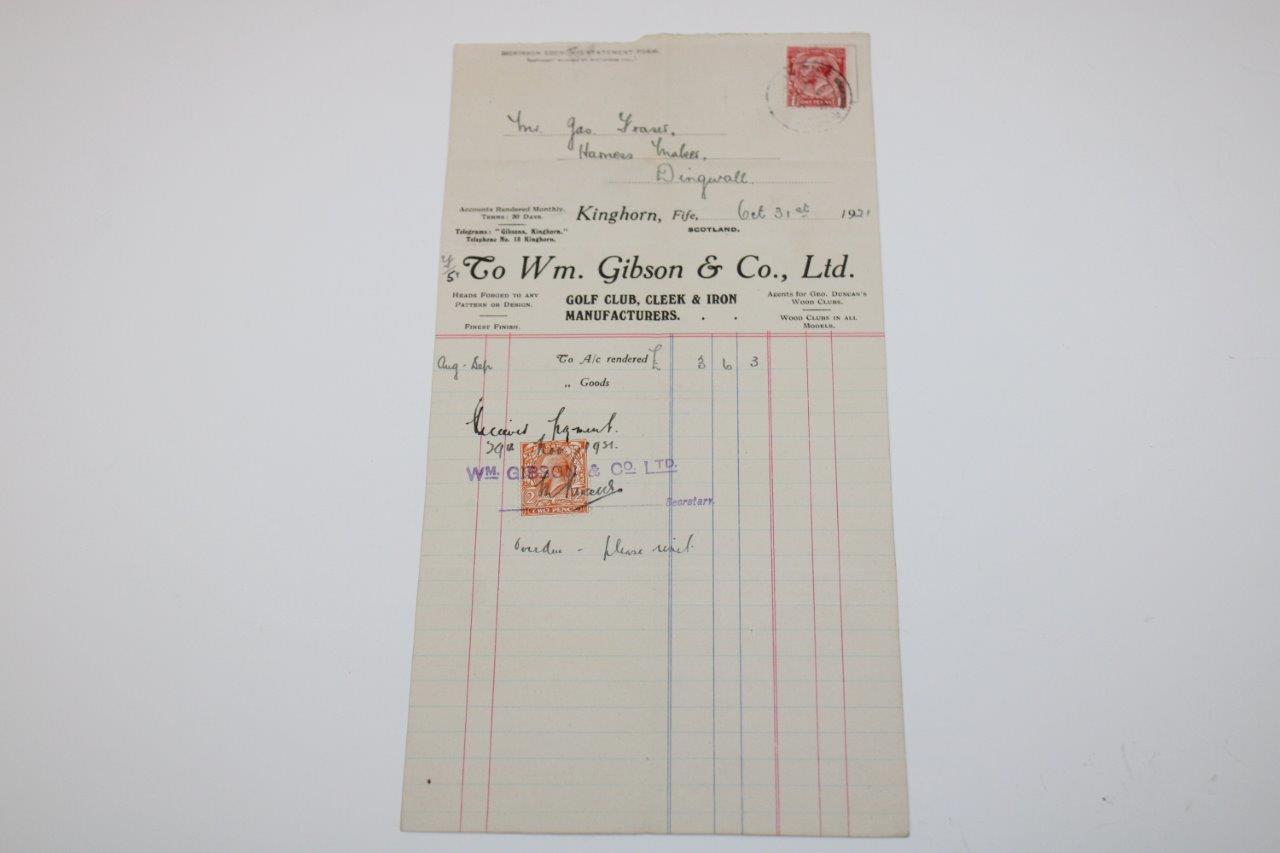 DICKINSON STATEMENT FORM.
ONE PENNY
Mr. Jas. Fraser,
Harness Maker,
Dingwall.
Accounts Rendered Monthly.
Terms: 30 Days.
Telegrams: "Gibsons, Kinghorn."
Telephone No. 18 Kinghorn.
Kinghorn, Fife, Oct 31st 1921
SCOTLAND.
To Wm. Gibson & Co., Ltd.
Heads Forged to any
Pattern or Design.
Finest Finish.
GOLF CLUB, CLEEK & IRON
MANUFACTURERS. . .
Agents for Geo. Duncan's
Wood Clubs.
Wood Clubs in all
Models.
Aug - Sep To A/c rendered £ 3 6 3
,, Goods
Received payment.
29th Nov 1921.
WM. GIBSON & CO. LTD.
2 TWO PENCE 2
Secretary.
Overdue - please remit